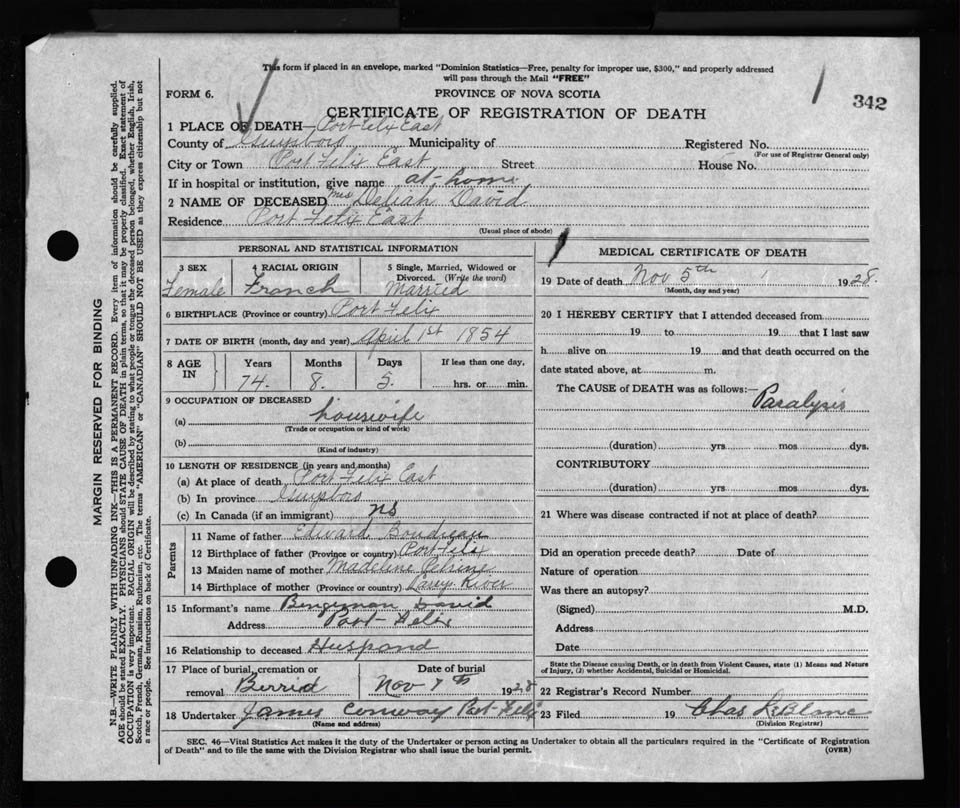 This form if placed in an envelope, marked "Dominion Statistics—Free, penalty for improper use, $300," and properly addressed
will pass through the Mail "FREE"
FORM 6.
PROVINCE OF NOVA SCOTIA
342
CERTIFICATE OF REGISTRATION OF DEATH
1 PLACE OF DEATH—Port Felix East
County of Guysboro Municipality of Registered No.
(For use of Registrar General only)
City or Town Port Felix East Street House No.
If in hospital or institution, give name at-home
2 NAME OF DECEASED Mrs Deliah David
Residence Port Felix East
(Usual place of abode)
PERSONAL AND STATISTICAL INFORMATION
3 SEX 4 RACIAL ORIGIN 5 Single, Married, Widowed or
Divorced. (Write the word)
Female Franch Married
6 BIRTHPLACE (Province or country) Port Felix
7 DATE OF BIRTH (month, day and year) April 1st 1854
8 AGE IN Years Months Days If less than one day,
74. 8. 5. hrs. or min.
9 OCCUPATION OF DECEASED
(a) housewife
(Trade or occupation or kind of work)
(b)
(Kind of industry)
10 LENGTH OF RESIDENCE (in years and months)
(a) At place of death Port Felix East
(b) In province Guysboro
(c) In Canada (if an immigrant) ns
Parents
11 Name of father Edward Boudreau
12 Birthplace of father (Province or country) Port Felix
13 Maiden name of mother Madeline
14 Birthplace of mother (Province or country) River
15 Informant's name Benjeman David
Address Port-Felix
16 Relationship to deceased Huspand
17 Place of burial, cremation or
removal Berrid
Date of burial
Nov 7th 1928
18 Undertaker James Conway Port-Felix
(Name and address)
MEDICAL CERTIFICATE OF DEATH
19 Date of death Nov 5th 1928.
(Month, day and year)
20 I HEREBY CERTIFY that I attended deceased from
19 to 19 that I last saw
h alive on 19 and that death occurred on the
date stated above, at m.
The CAUSE OF DEATH was as follows:— Paralysis
(duration) yrs mos dys.
CONTRIBUTORY
(duration) yrs. mos dys.
21 Where was disease contracted if not at place of death?
Did an operation precede death? Date of
Nature of operation
Was there an autopsy?
(Signed) M.D.
Address
Date
State the Disease causing Death, or in death from Violent Causes, state (1) Means and Nature
of Injury, (2) whether Accidental, Suicidal or Homicidal.
22 Registrar's Record Number
23 Filed 19 Chas LeBlanc
(Division Registrar)
SEC. 46—Vital Statistics Act makes it the duty of the Undertaker or person acting as Undertaker to obtain all the particulars required in the "Certificate of Registration
of Death" and to file the same with the Division Registrar who shall issue the burial permit.
(OVER)
MARGIN RESERVED FOR BINDING
N.B.—WRITE PLAINLY WITH UNFADING INK—THIS IS A PERMANENT RECORD. Every item of information should be carefully supplied.
AGE should be stated EXACTLY. PHYSICIANS should STATE CAUSE OF DEATH in plain terms, so that it may be properly classified. Exact statement of
OCCUPATION is very important. RACIAL ORIGIN will be described by stating to what people or tongue the deceased person belonged, whether English, Irish,
Scotch, French, German, Russian, Ruthenian, etc. The terms "AMERICAN" or "CANADIAN" SHOULD NOT BE USED as they express citizenship but not
a race or people. See instructions on back of Certificate.